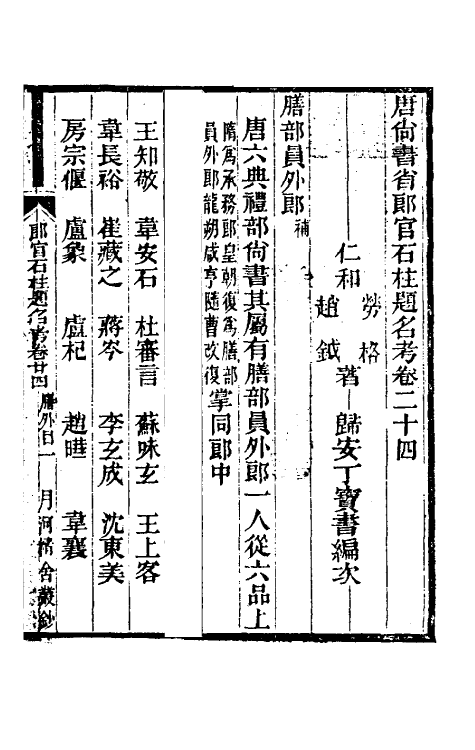 唐尙書省郎官石柱題名考卷二十四
勞格
仁和 著 歸安丁寶書編次
趙鉞
膳部員外郎補
唐六典禮部尙書其屬有膳部員外郎一人從六品上
隋爲承務郎皇朝復爲膳部
員外郎龍朔咸亨隨曹改復
掌同郎中
王知敬 韋安石 杜審言 蘇味玄 王上客
韋長裕 崔藏之 蔣岑 李玄成 沈東美
房宗偃 盧象 盧杞 趙曄 韋襄
郎官石柱題名考卷廿四 膳外目一 月河精舍叢鈔